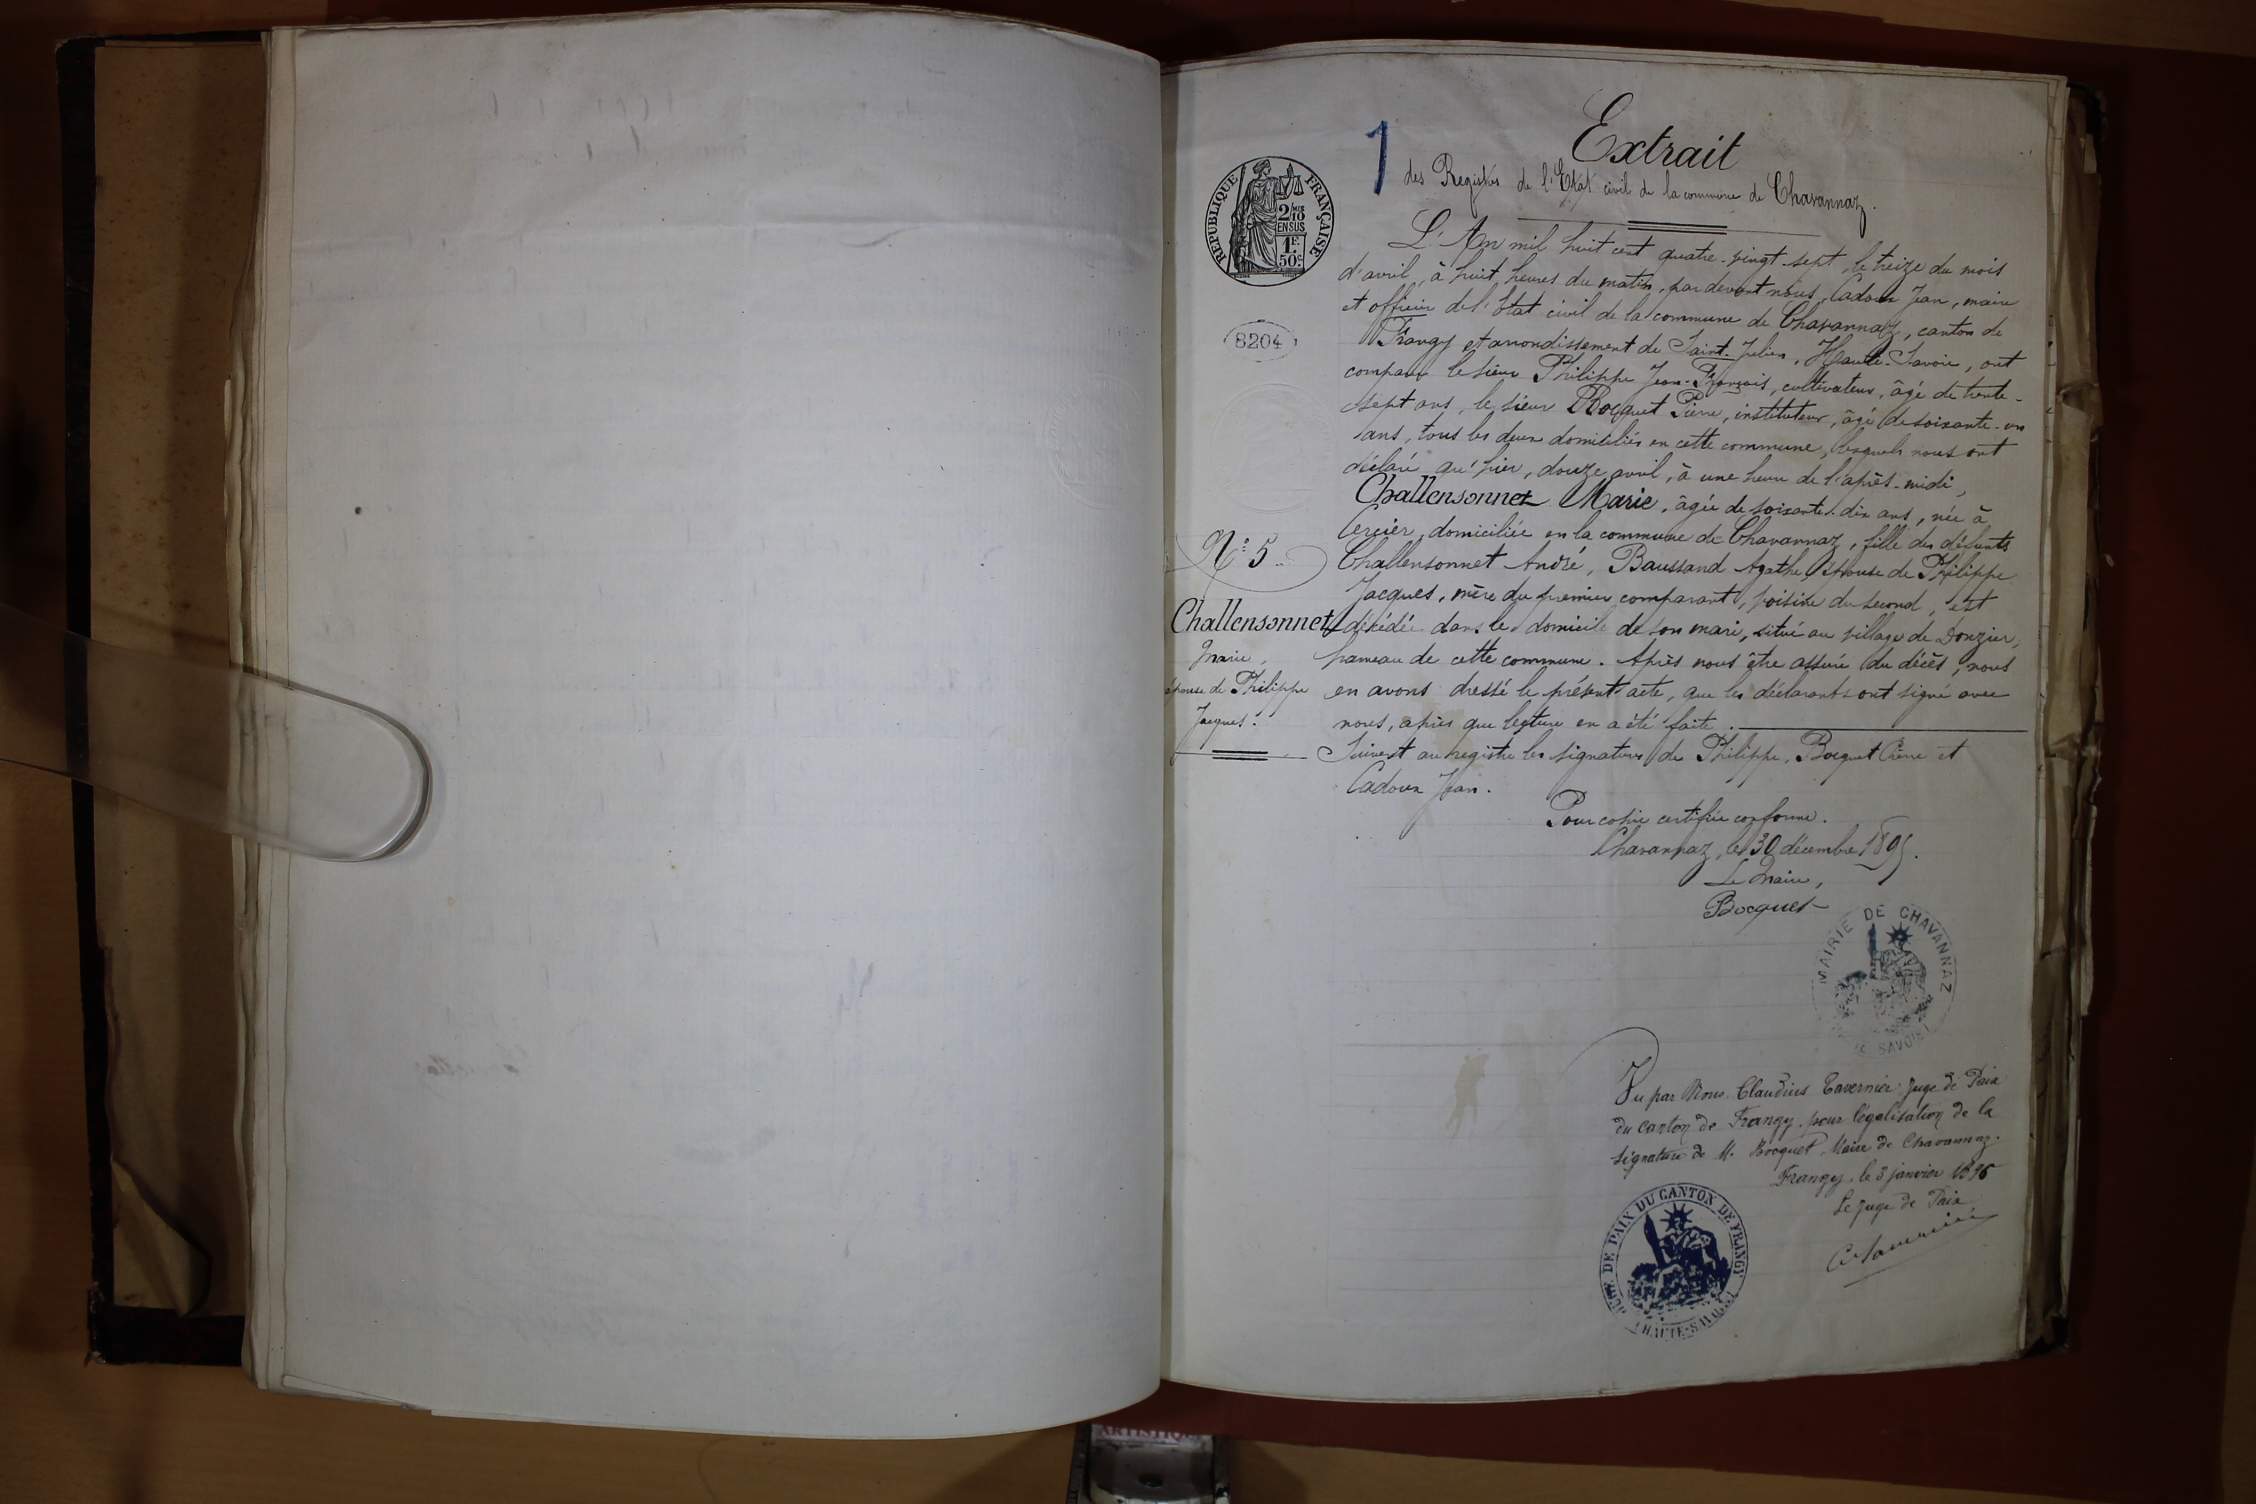 1
Extrait
des Registres de l'Etat civil de la commune de Chavannaz.
REPUBLIQUE FRANÇAISE
2/10 EN SUS
1F. 50c.
8204
L'An mil huit cent quatre-vingt-sept, le treize du mois
d'avril, à huit heures du matin, par devant nous, Cadoux Jean, maire
et officier de l'Etat civil de la commune de Chavannaz, canton de
Frangy et arrondissement de Saint-Julien, Haute-Savoie, ont
comparu le sieur Philippe Jean-François, cultivateur, âgé de trente-
sept ans, le sieur Bocquet Pierre, instituteur, âgé de soixante-un
ans, tous les deux domiciliés en cette commune, lesquels nous ont
déclaré qu'hier, douze avril, à une heure de l'après-midi,
Challensonnet Marie, âgée de soixante-dix ans, née à
Cercier, domiciliée en la commune de Chavannaz, fille des défunts
Challensonnet André, Baussand Agathe, épouse de Philippe
Jacques, mère du premier comparant, voisine du second, est
décédée dans le domicile de son mari, situé au village de Donzier,
hameau de cette commune. Après nous être assuré du décès, nous
en avons dressé le présent acte, que les déclarants ont signé avec
nous, après que lecture en a été faite.
Suivent au registre les signatures de Philippe, Bocquet Pierre et
Cadoux Jean.
N° 5
Challensonnet
Marie,
épouse de Philippe
Jacques.
Pour copie certifiée conforme.
Chavannaz, le 30 décembre 1895.
Le Maire,
Bocquet
MAIRIE DE CHAVANNAZ
SAVOIE
Vu par Nous Claudius Tavernier Juge de Paix
du canton de Frangy pour légalisation de la
signature de M. Bocquet, Maire de Chavannaz.
Frangy, le 3 janvier 1896
Le Juge de Paix
Cl Tavernier
DE PAIX DU CANTON DE FRANGY
HAUTE-SAVOIE